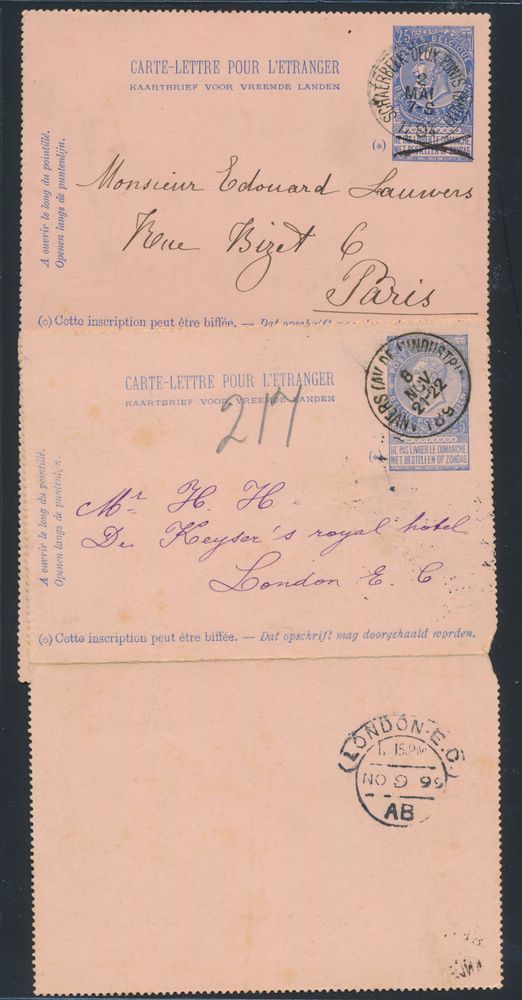 CARTE-LETTRE POUR L'ETRANGER
KAARTBRIEF VOOR VREEMDE LANDEN
25
SCHAERBEEK-DEUX PONTS
2
MAI
7-S
(*)
NE PAS LIVRER LE DIMANCHE
NIET BESTELLEN OP ZONDAG
A ouvrir le long du pointillé.
Openen langs de puntenlijn.
Monsieur Edouard Lauwers
Rue Bizet 6
Paris
(*) Cette inscription peut être biffée. — Dat opschrift mag
CARTE-LETTRE POUR L'ETRANGER
KAARTBRIEF VOOR VREEMDE LANDEN
ANVERS (AV DE L'INDUSTRIE
8
NOV
21-22
NE PAS LIVRER LE DIMANCHE
NIET BESTELLEN OP ZONDAG
217
A ouvrir le long du pointillé.
Openen langs de puntenlijn.
Mr H. H.
De Keyser's royal hotel
London E. C
(*) Cette inscription peut être biffée. — Dat opschrift mag doorgehaald worden.
LONDON.E.C.
1. 15.PM
NO 9 96
AB